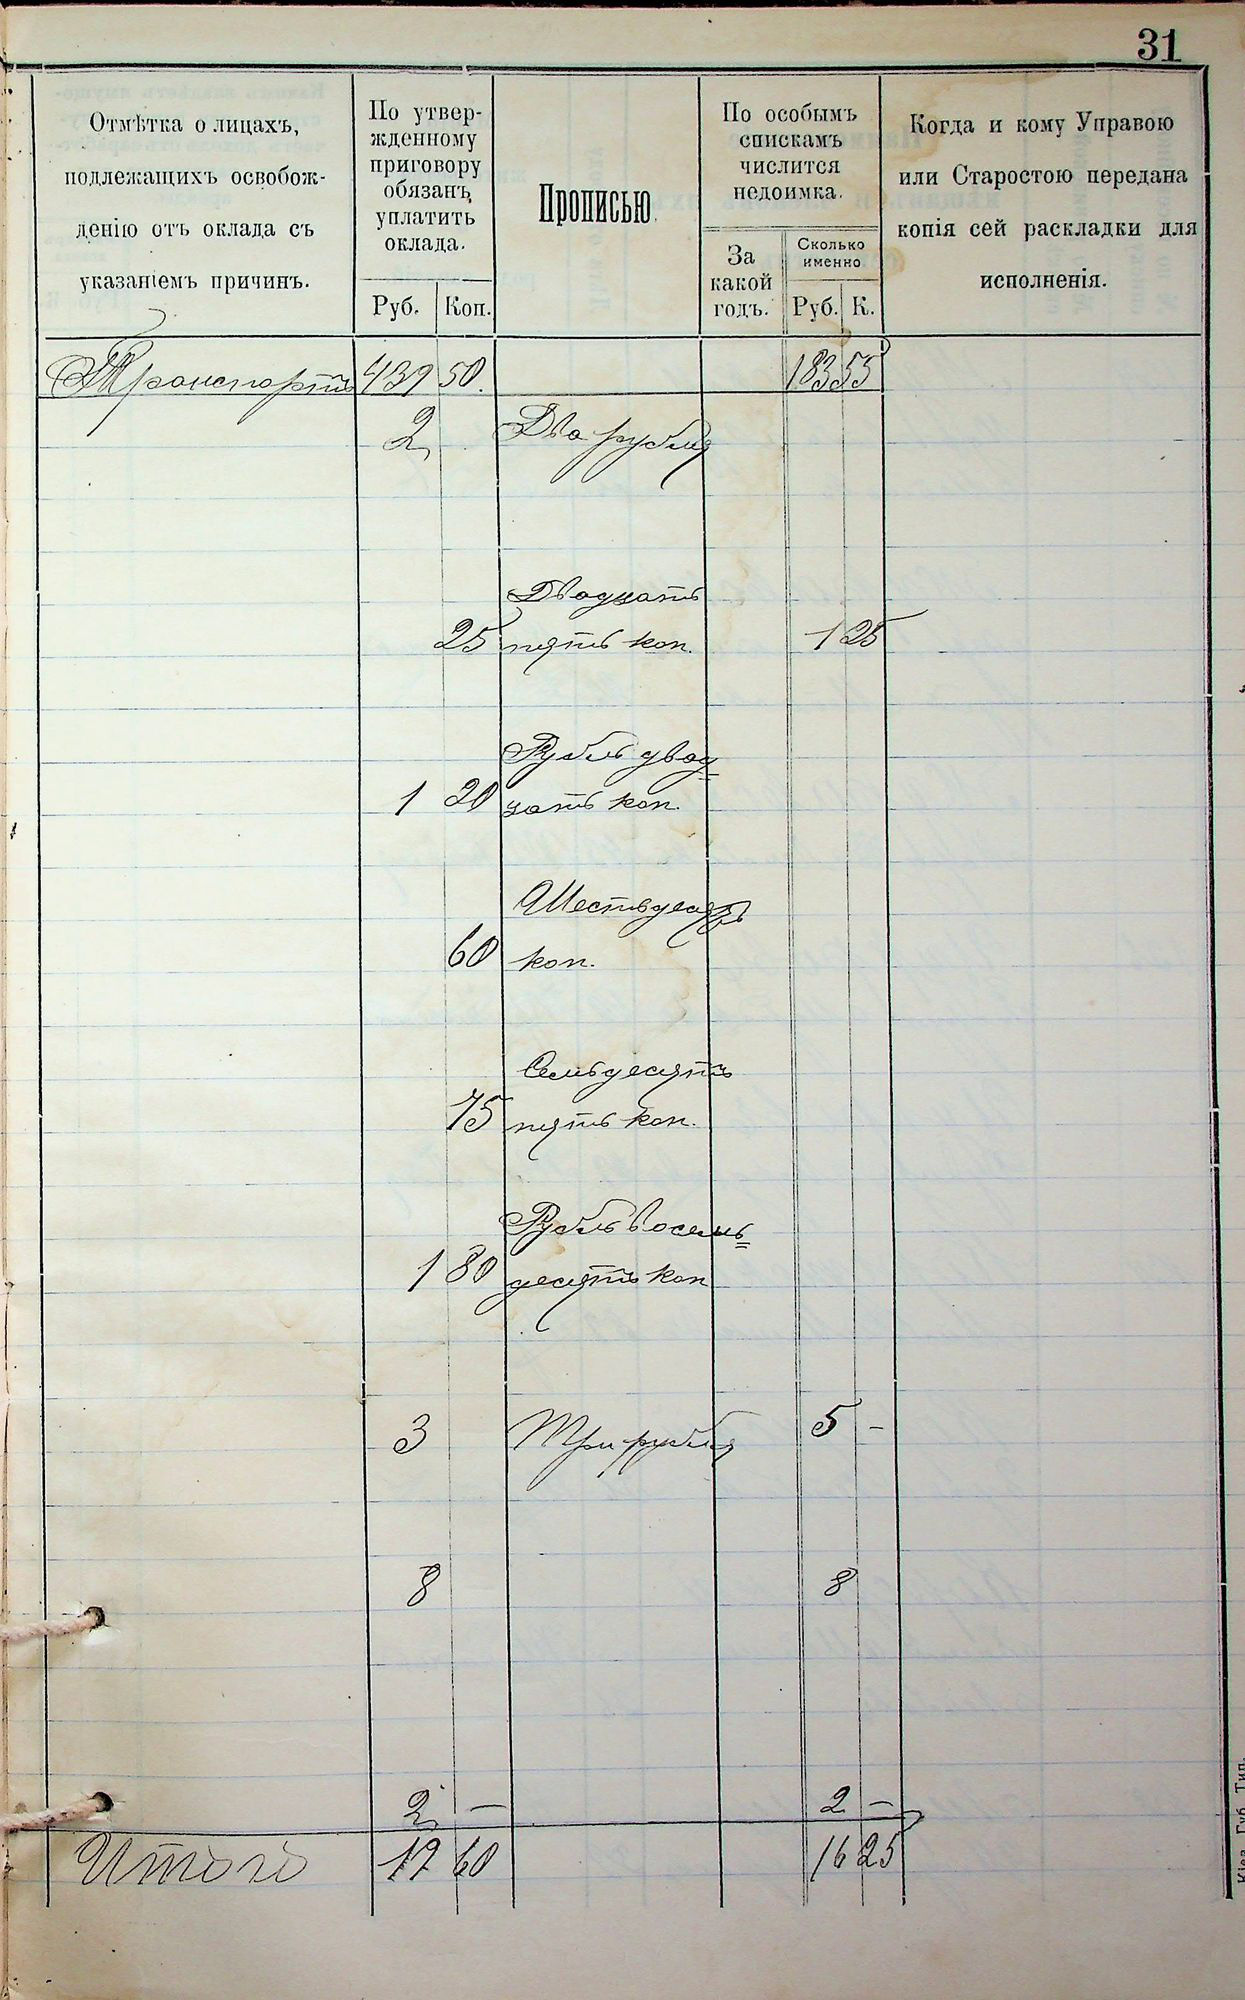 31
Отмѣтка о лицахъ,
подлежащихъ освобож-
денію отъ оклада съ
указаніемъ причинъ.
По утвер-
жденному
приговору
обязанъ
уплатить
оклада.
Руб. Коп.
Прописью.
По особымъ
спискамъ
числится
недоимка.
За
какой
годъ.
Сколько
именно
Руб. К.
Когда и кому Управою
или Старостою передана
копія сей раскладки для
исполненія.
Транспортъ 439 50. 183 55
2 Два рубля
Двадцать
25 пять коп. 1 25
Рубль двад=
1 20 цать коп.
Шестьдесятъ
60 коп.
Семьдесятъ
75 пять коп.
Рубль восемь=
1 80 десятъ коп
3 Три рубля 5 –
8 8
2 – 2 –
Итого 19 60 16 25
Кіев. Губ. Тип.